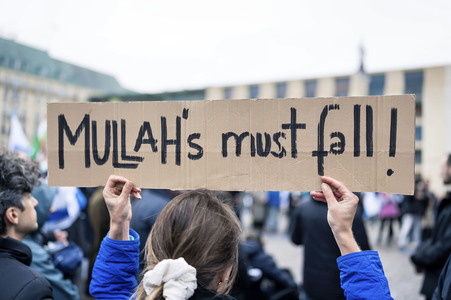 MULLAH's must fall!